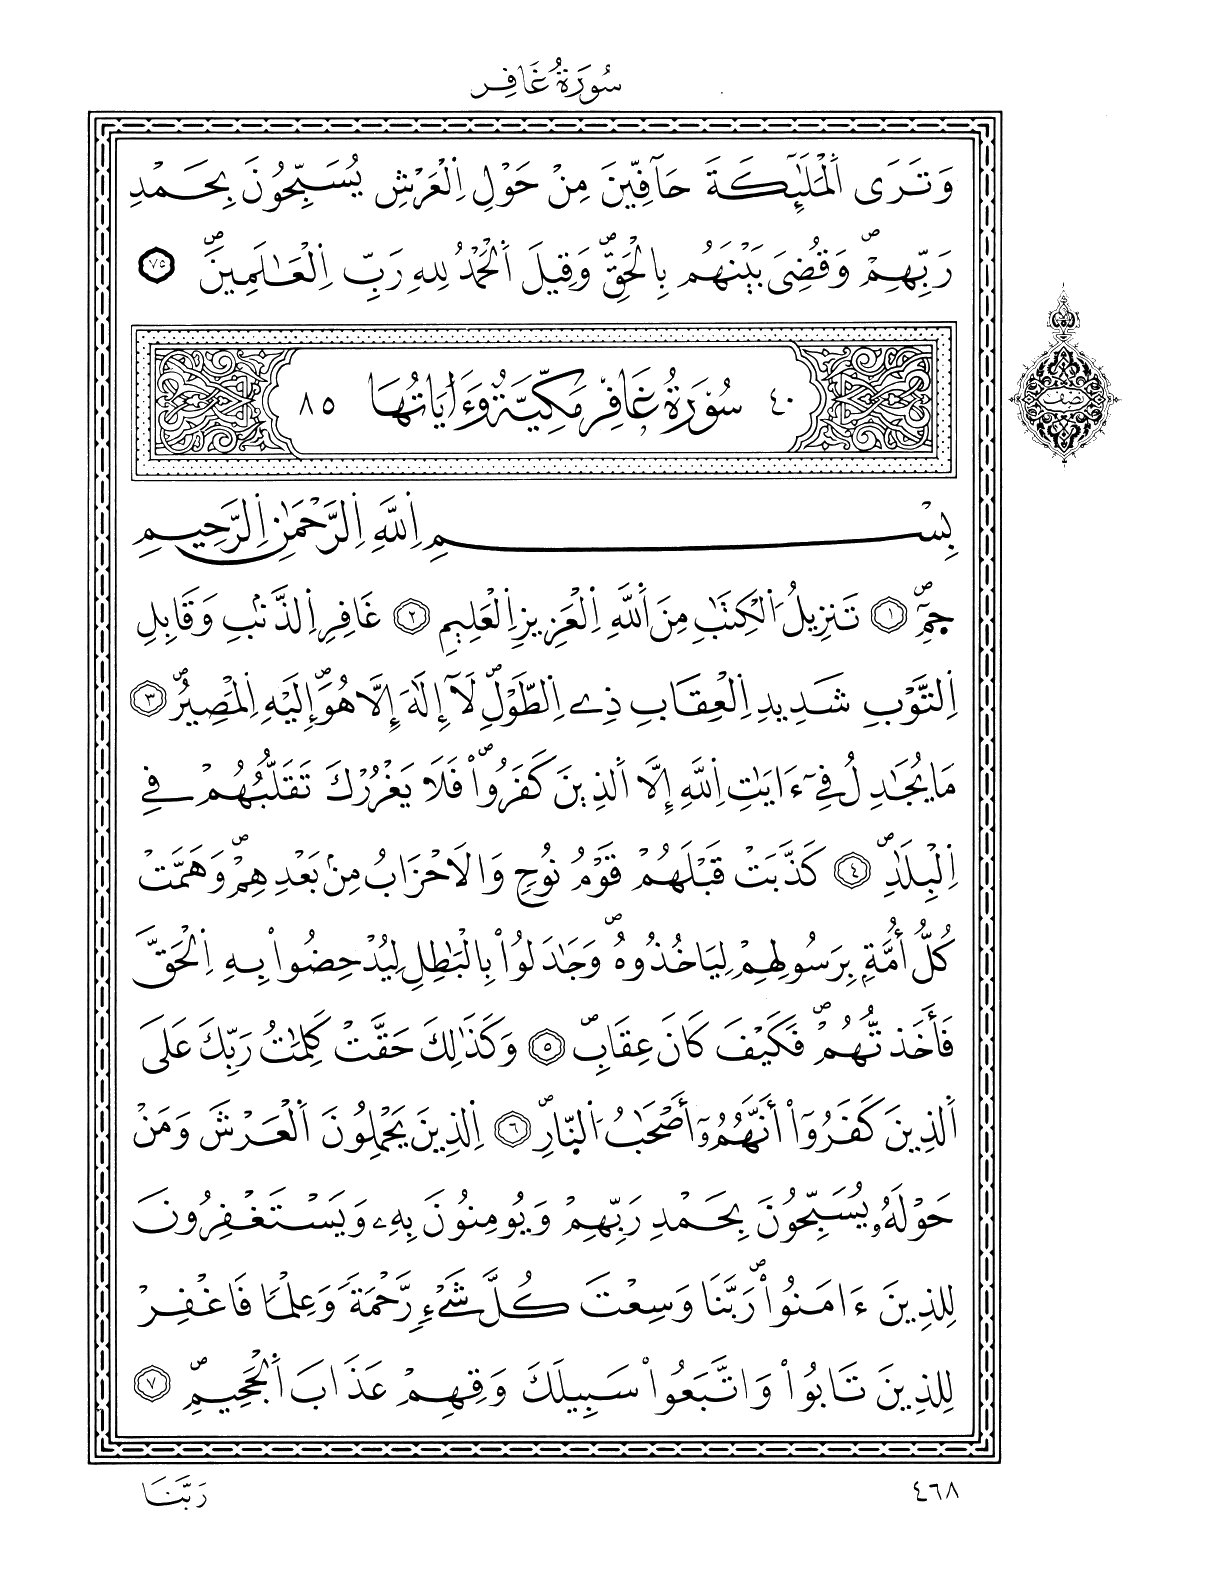 سُورَةُ غَافِر
وَتَرَى اَ۬لْمَلَٰٓئِكَةَ حَآفِّينَ مِنْ حَوْلِ اِ۬لْعَرْشِ يُسَبِّحُونَ بِحَمْدِ
رَبِّهِمْۖ وَقُضِيَ بَيْنَهُم بِالْحَقِّۖ وَقِيلَ اَ۬لْحَمْدُ لِلهِ رَبِّ اِ۬لْعَٰلَمِينَۖ ٧٥
نصف
٤٠ سُورَةُ غَافِر مَكِّيَّة وَءَايَاتُهَا ٨٥
بِسْمِ اِ۬للَّهِ اِ۬لرَّحْمَٰنِ اِ۬لرَّحِيمِ
حَمِٓۖ ١ تَنزِيلُ اُ۬لْكِتَٰبِ مِنَ اَ۬للَّهِ اِ۬لْعَزِيزِ اِ۬لْعَلِيمِ ٢ غَافِرِ اِ۬لذَّنۢبِ وَقَابِلِ
اِ۬لتَّوْبِ شَدِيدِ اِ۬لْعِقَابِ ذِے اِ۬لطَّوْلِۖ لَآ إِلَٰهَ إِلَّا هُوَۖ إِلَيْهِ اِ۬لْمَصِيرُۖ ٣
مَا يُجَٰدِلُ فِےٓ ءَايَٰتِ اِ۬للَّهِ إِلَّا اَ۬لذِينَ كَفَرُواْۖ فَلَا يَغْرُرْكَ تَقَلُّبُهُمْ فِے
اِ۬لْبِلَٰدِۖ ٤ كَذَّبَتْ قَبْلَهُمْ قَوْمُ نُوحٖ وَالَاحْزَابُ مِنۢ بَعْدِهِمْۖ وَهَمَّتْ
كُلُّ أُمَّةِۢ بِرَسُولِهِمْ لِيَاخُذُوهُۖ وَجَٰدَلُواْ بِالْبَٰطِلِ لِيُدْحِضُواْ بِهِ اِ۬لْحَقَّ
فَأَخَذتُّهُمْۖ فَكَيْفَ كَانَ عِقَابِۖ ٥ وَكَذَٰلِكَ حَقَّتْ كَلِمَٰتُ رَبِّكَ عَلَى
اَ۬لذِينَ كَفَرُوٓاْ أَنَّهُمُۥٓ أَصْحَٰبُ اُ۬لنّ۪ارِۖ ٦ اِ۬لذِينَ يَحْمِلُونَ اَ۬لْعَرْشَ وَمَنْ
حَوْلَهُۥ يُسَبِّحُونَ بِحَمْدِ رَبِّهِمْ وَيُومِنُونَ بِهِۦ وَيَسْتَغْفِرُونَ
لِلذِينَ ءَامَنُواْۖ رَبَّنَا وَسِعْتَ كُلَّ شَےْءٖ رَّحْمَةٗ وَعِلْماٗ فَاغْفِرْ
لِلذِينَ تَابُواْ وَاتَّبَعُواْ سَبِيلَكَ وَقِهِمْ عَذَابَ اَ۬لْجَحِيمِۖ ٧
٤٦٨
رَبَّنَا